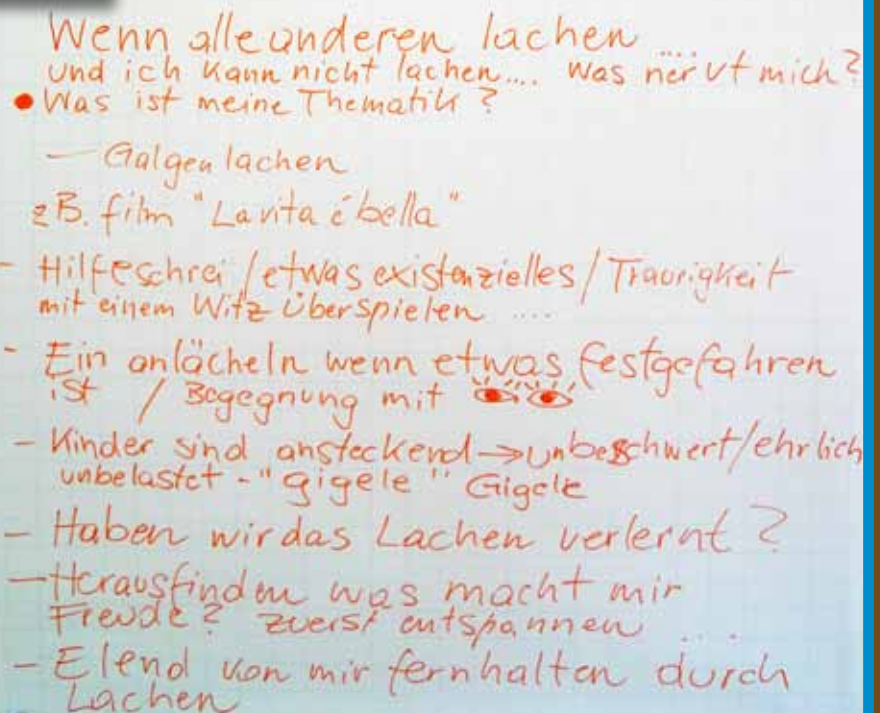 Wenn alle anderen lachen ....
und ich kann nicht lachen.... Was nervt mich?
• Was ist meine Thematik?
— Galgenlachen
zB. film "La vita é bella"
- Hilfeschrei / etwas existenzielles / Traurigkeit
mit einem Witz überspielen ....
- Ein anlächeln wenn etwas festgefahren
ist / Begegnung mit
- Kinder sind ansteckend → unbeschwert/ehrlich
unbelastet - "gigele" Gigele
- Haben wir das Lachen verlernt?
- Herausfinden was macht mir
Freude? zuerst entspannen ...
- Elend von mir fernhalten durch
Lachen